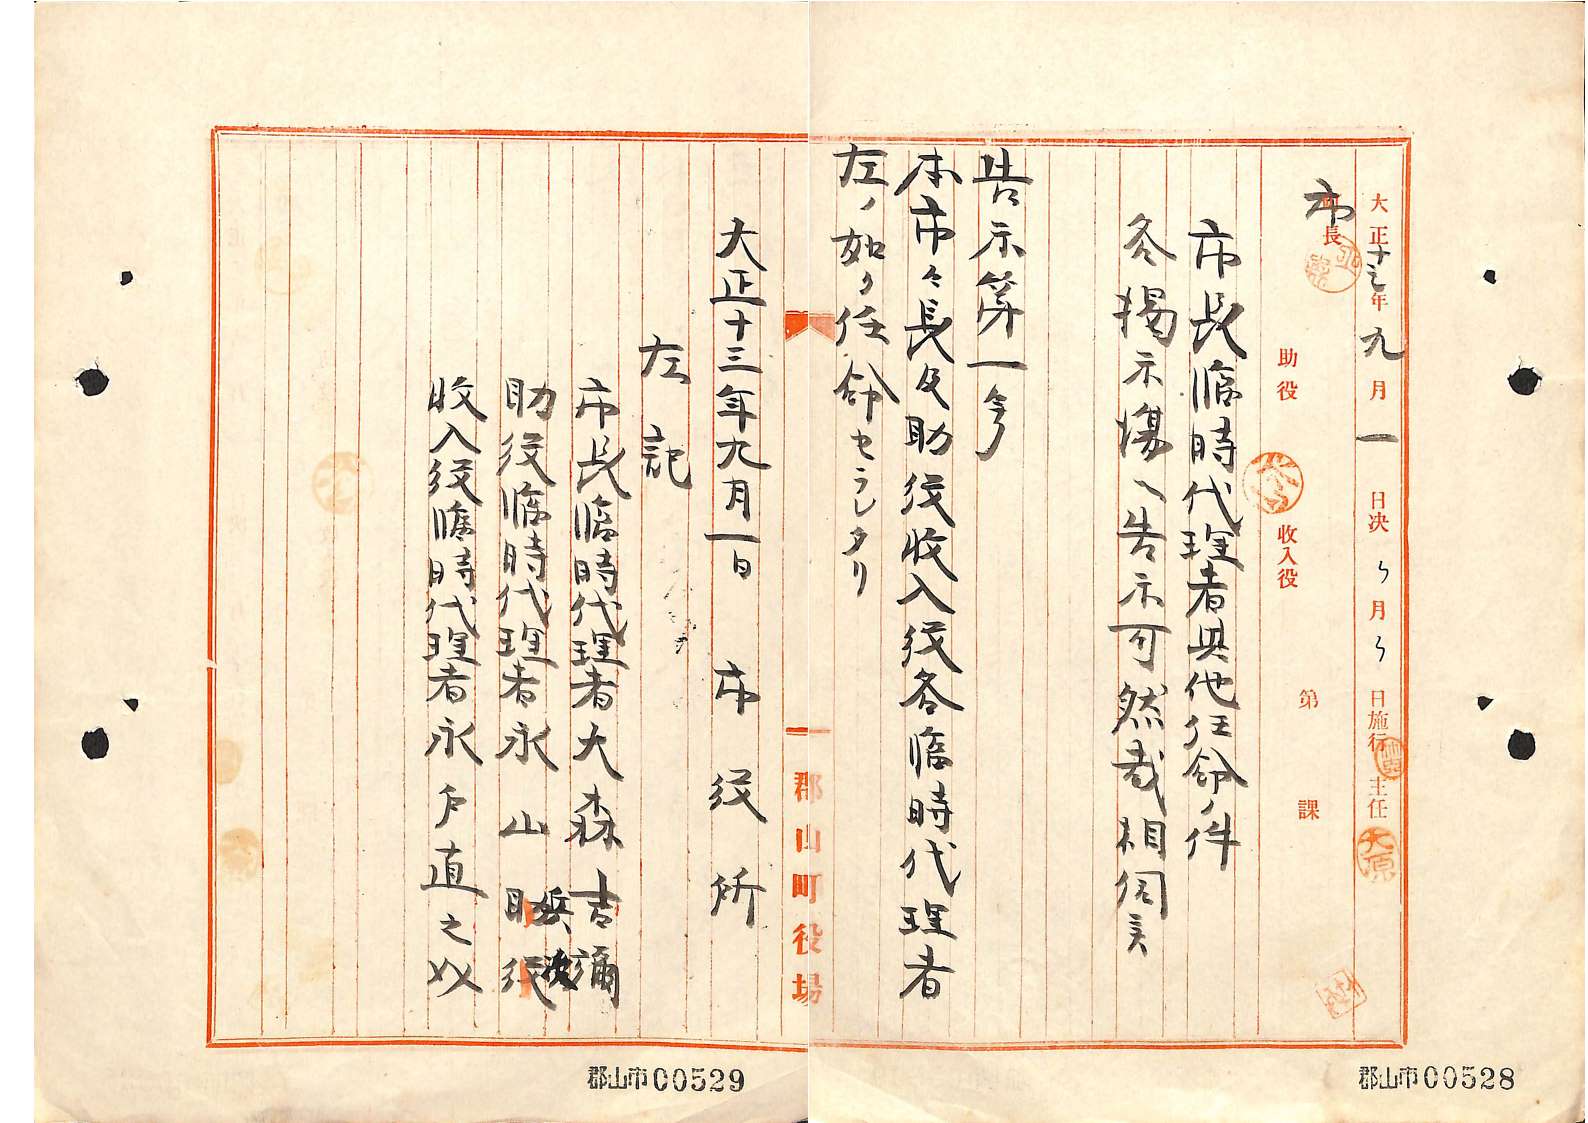 大正十三年九月一日決 〃月〃日施行 主任 大原
市長
助役 収入役 第 課
市長臨時代理者其他任命ノ件
各掲示場ヘ告示可然哉相伺候
告示第一号
本市々長及助役收入役各臨時代理者
左ノ如ク任命セラレタリ
大正十三年九月一日 市役所
左記
市長臨時代理者大森吉彌
助役臨時代理者永山兵次
收入役臨時代理者永戸直之㕥
郡山町役場
郡山市00529
郡山市00528